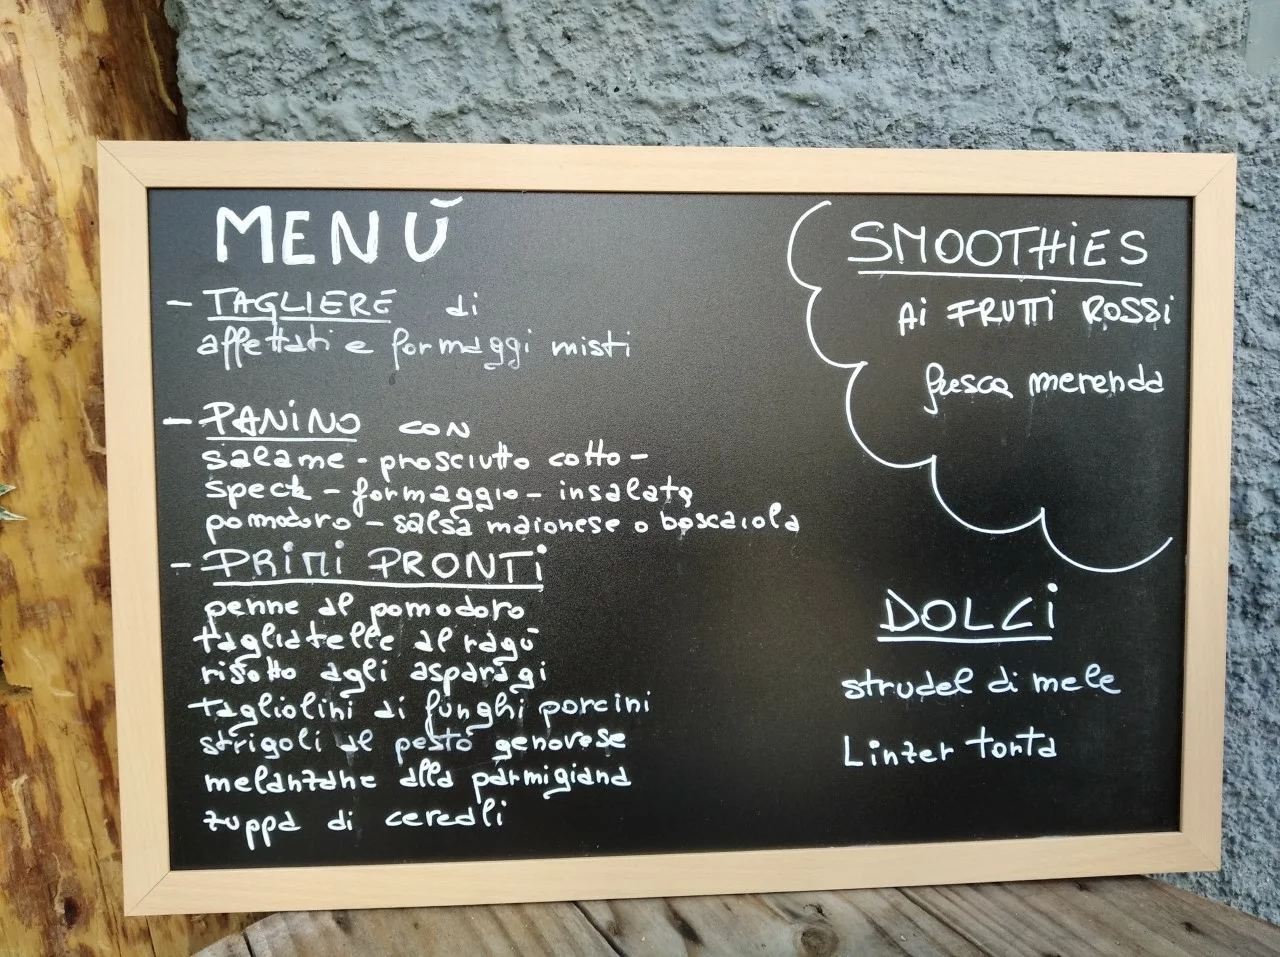 MENÙ
- TAGLIERE di
affettati e formaggi misti
- PANiNO con
salame - prosciutto cotto -
speck - formaggio - insalata
pomodoro - salsa maionese o boscaiola
- PRiMi PRONTi
penne al pomodoro
tagliatelle al ragù
risotto agli asparagi
tagliolini ai funghi porcini
strigoli al pesto genovese
melanzane alla parmigiana
zuppa di cereali
SMOOTHiES
Ai FRUTTi ROSSi
fresca merenda
DOLCi
strudel di mele
Linzer torta